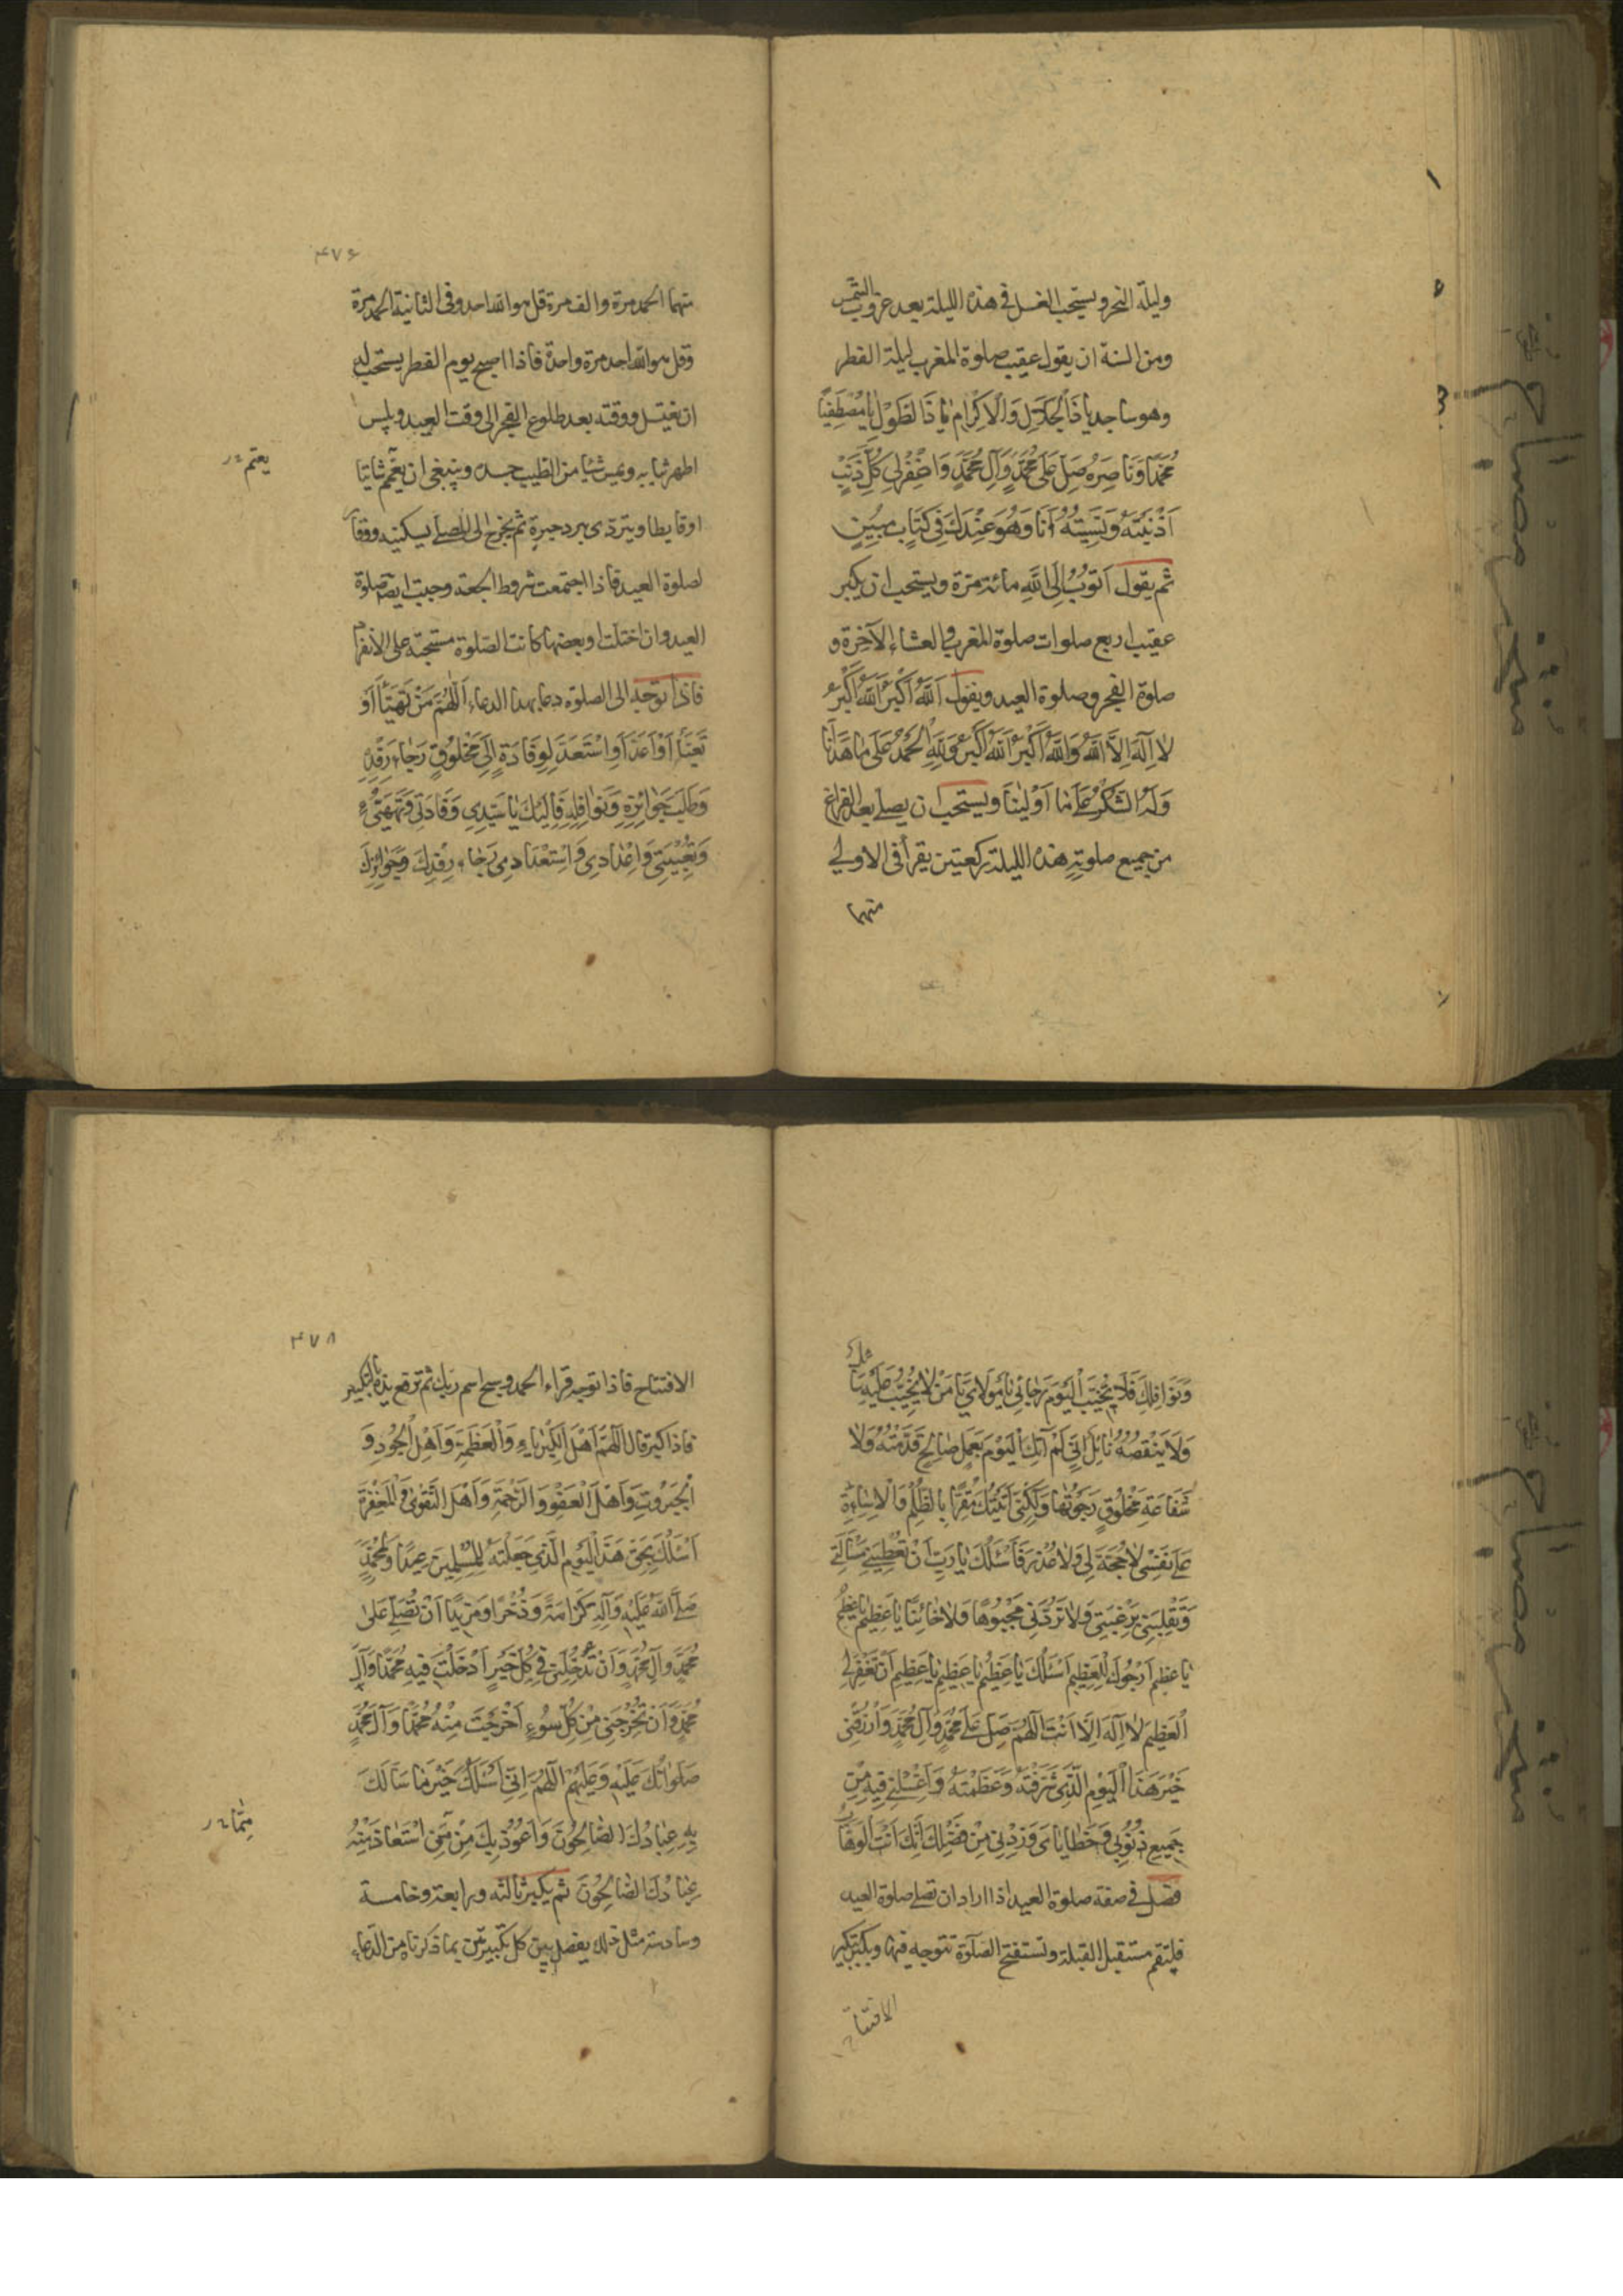 وليلة النحر ويستحب الغسل في هذه الليلة بعد غروب الشمس
ومن السنة ان يقول عقيب صلوة المغرب ليلة الفطر
وهو ساجد يا ذَا الْجَلَالِ وَالْاِكْرَامِ يَا ذَا الطَّوْلِ يَا مُصْطَفِيًا
مُحَمَّدًا وَنَاصِرَهُ صَلِّ عَلَى مُحَمَّدٍ وَآلِ مُحَمَّدٍ وَاغْفِرْ لِي كُلَّ ذَنْبٍ
اَذْنَبْتُهُ وَنَسِيتُهُ اَنَا وَهُوَ عِنْدَكَ فِي كِتَابٍ مُبِينٍ
ثم يقول اَتُوبُ اِلَى اللَّهِ مائة مرة ويستحب ان يكبر
عقيب اربع صلوات صلوة المغرب والعشاء الآخرة و
صلوة الفجر وصلوة العيد ويقول اَللَّهُ اَكْبَرُ اَللَّهُ اَكْبَرُ
لَا اِلَهَ اِلَّا اللَّهُ وَاللَّهُ اَكْبَرُ اَللَّهُ اَكْبَرُ وَلِلَّهِ الْحَمْدُ عَلَى مَا هَدَانَا
وَلَهُ الشُّكْرُ عَلَى مَا اَوْلَيْنَا ويستحب ان يصلي بعد الفراغ
من جميع صلوته هذه الليلة ركعتين يقرأ في الاولى
منهما
۴۷۶
منهما الحمد مرة والف مرة قل هو الله احد وفي الثانية الحمد مرة
وقل هو الله احد مرة واحدة فاذا اصبح يوم الفطر يستحب له
ان يغتسل ووقته بعد طلوع الفجر الى وقت العيد ويلبس
اطهر ثيابه ويمس شيئا من الطيب جسده وينبغي ان يعمم شاتيا
يعتم
او قايظا ويتردى ببرد حبرة ثم يخرج الى المصلى بسكينة ووقار
لصلوة العيد فاذا اجتمعت شروط الجمعة وجبت ايضا صلوة
العيد وان اختلت او بعضها كانت الصلوة مستحبة على الانفراد
فاذا توجه الى الصلوة دعا بهذا الدعاء اَللَّهُمَّ مَنْ تَهَيَّأَ اَوْ
تَعَبَّأَ اَوْ اَعَدَّ اَوِ اسْتَعَدَّ لِوِفَادَةٍ اِلَى مَخْلُوقٍ رَجَاءَ رِفْدِهِ
وَطَلَبَ جَوَائِزِهِ وَنَوَافِلِهِ فَاِلَيْكَ يَا سَيِّدِي وِفَادَتِي وَتَهْيِئَتِي
وَتَعْبِيَتِي وَاِعْدَادِي وَاسْتِعْدَادِي رَجَاءَ رِفْدِكَ وَجَوَائِزِكَ
وَنَوَافِلِكَ فَلَا تُخَيِّبِ الْيَوْمَ رَجَائِي يَا مَوْلَايَ يَا مَنْ لَا يَخِيبُ عَلَيْهِ
وَلَا يَنْقُصُهُ نَائِلٌ اِنِّي لَمْ آتِكَ الْيَوْمَ بِعَمَلٍ صَالِحٍ قَدَّمْتُهُ وَلَا
شَفَاعَةِ مَخْلُوقٍ رَجَوْتُهَا وَلَكِنِّي اَتَيْتُكَ مُقِرًّا بِالظُّلْمِ وَالْاِسَاءَةِ
عَلَى نَفْسِي لَا حُجَّةَ لِي وَلَا عُذْرَ فَاَسْئَلُكَ يَا رَبِّ اَنْ تُعْطِيَنِي مَسْأَلَتِي
وَتَقْلِبَنِي بِرَغْبَتِي وَلَا تَرُدَّنِي مَجْبُوهًا وَلَا خَائِبًا يَا عَظِيمُ يَا عَظِيمُ
يَا عَظِيمُ اَرْجُوكَ لِلْعَظِيمِ اَسْئَلُكَ يَا عَظِيمُ يَا عَظِيمُ يَا عَظِيمُ اَنْ تَغْفِرَ لِي
الْعَظِيمَ لَا اِلَهَ اِلَّا اَنْتَ اَللَّهُمَّ صَلِّ عَلَى مُحَمَّدٍ وَآلِ مُحَمَّدٍ وَارْزُقْنِي
خَيْرَ هَذَا الْيَوْمِ الَّذِي شَرَّفْتَهُ وَعَظَّمْتَهُ وَاغْسِلْنِي فِيهِ مِنْ
جَمِيعِ ذُنُوبِي وَخَطَايَايَ وَزِدْنِي مِنْ فَضْلِكَ اِنَّكَ اَنْتَ الْوَهَّابُ
فصل في صفة صلوة العيد اذا اراد ان تصلي صلوة العيد
فليقم مستقبل القبلة وتستفتح الصلوة تتوجه فيها ويكبر تكبير
الافتتاح
۴۷۸
الافتتاح فاذا توجه قراء الحمد وسبح اسم ربك ثم ترفع يده بالتكبير
فاذا كبر قال اَللَّهُمَّ اَهْلَ الْكِبْرِيَاءِ وَالْعَظَمَةِ وَاَهْلَ الْجُودِ وَ
الْجَبَرُوتِ وَاَهْلَ الْعَفْوِ وَالرَّحْمَةِ وَاَهْلَ التَّقْوَى وَالْمَغْفِرَةِ
اَسْئَلُكَ بِحَقِّ هَذَا الْيَوْمِ الَّذِي جَعَلْتَهُ لِلْمُسْلِمِينَ عِيدًا وَلِمُحَمَّدٍ
صَلَّى اللَّهُ عَلَيْهِ وَآلِهِ كَرَامَةً وَذُخْرًا وَمَزِيدًا اَنْ تُصَلِّيَ عَلَى
مُحَمَّدٍ وَآلِ مُحَمَّدٍ وَاَنْ تُدْخِلَنِي فِي كُلِّ خَيْرٍ اَدْخَلْتَ فِيهِ مُحَمَّدًا وَآلَ
مُحَمَّدٍ وَاَنْ تُخْرِجَنِي مِنْ كُلِّ سُوءٍ اَخْرَجْتَ مِنْهُ مُحَمَّدًا وَآلَ مُحَمَّدٍ
صَلَوَاتُكَ عَلَيْهِ وَعَلَيْهِمْ اَللَّهُمَّ اِنِّي اَسْئَلُكَ خَيْرَ مَا سَأَلَكَ
بِهِ عِبَادُكَ الصَّالِحُونَ وَاَعُوذُ بِكَ مِنْ مَنِ اسْتَعَاذَ مِنْهُ
مِمَّا
عِبَادُكَ الصَّالِحُونَ ثم يكبر ثالثه ورابعة وخامسة
وسادسة مثل ذلك يفصل بين كل تكبيرتين بما ذكرناه من الدعاء